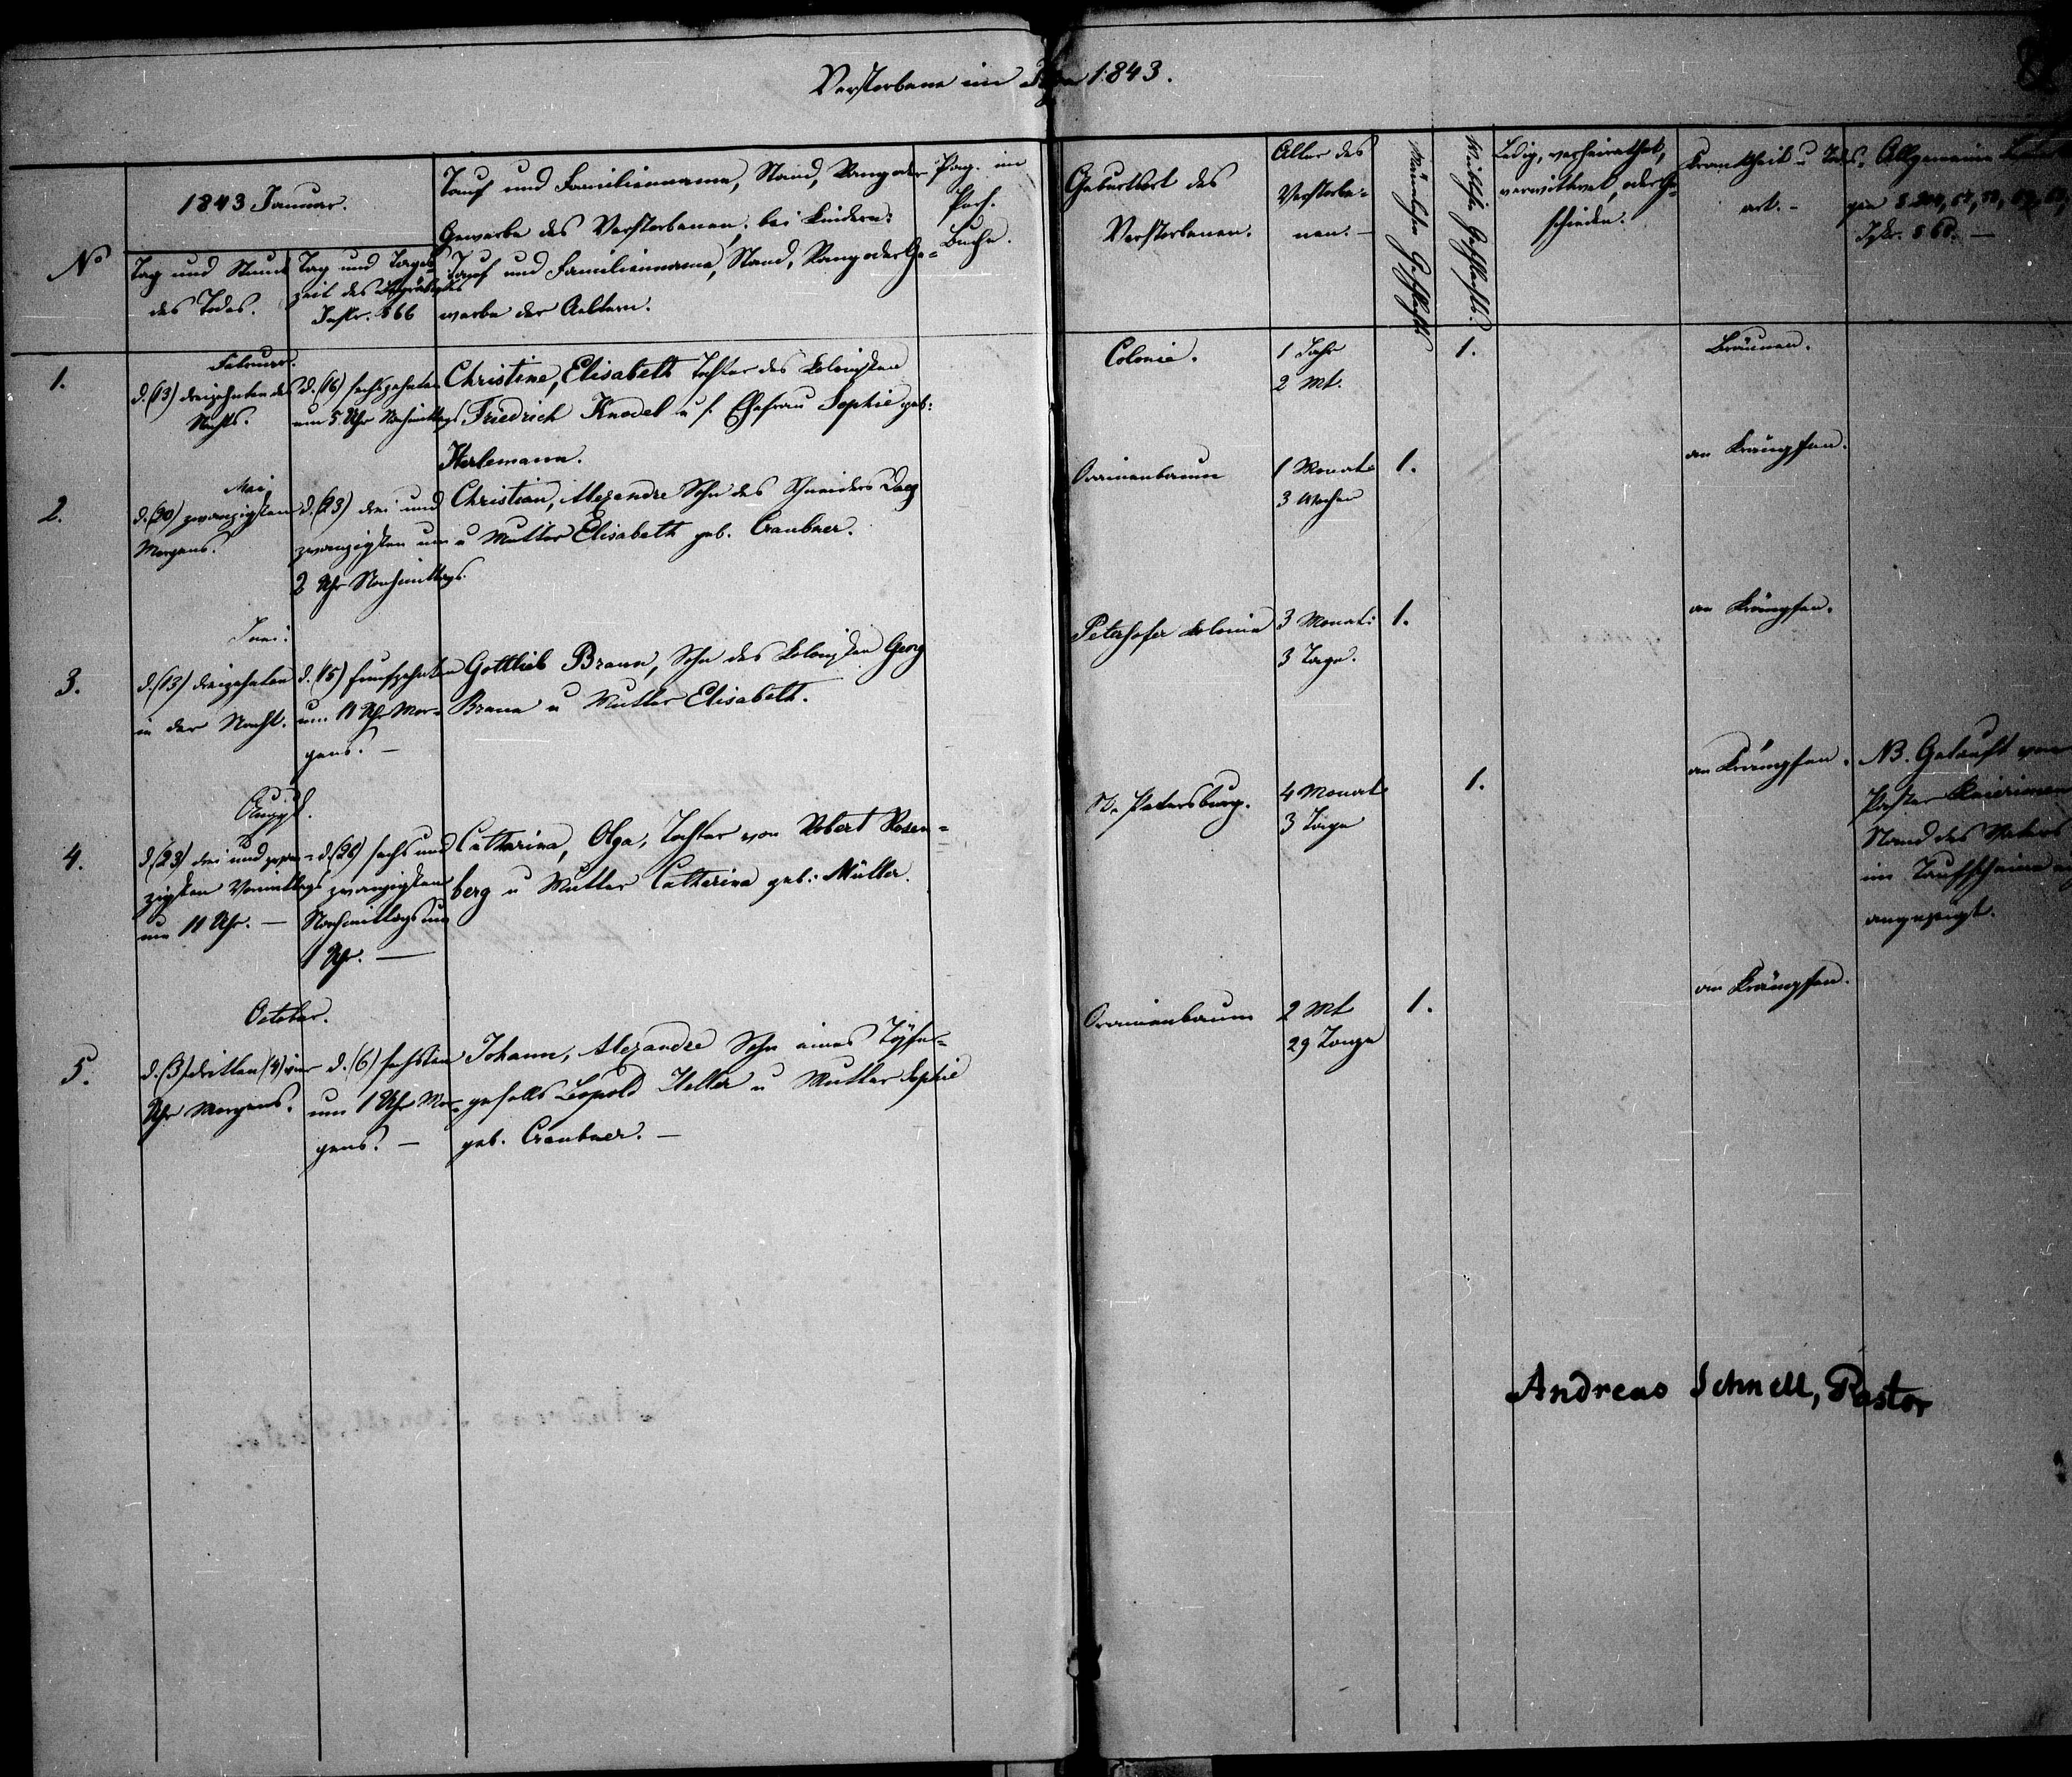 Verstorbene im Jahre 1843.
No
1843 Januar.
Tag und Stunde
des Todes.
Tag und Tages-
zeit des Begräbnißes
Instr. § 66
Tauf und Familienname, Stand, Rang oder
Gewerbe des Verstorbenen; bei Kindern:
Tauf und Familienname, Stand, Rang oder Ge-
werbe der Aeltern.
Pag. im
Pers.
Buche.
Geburtsort des
Verstorbenen.
Alter des
Verstorbe-
nen. -
Männlichen Geschlechts
Weiblichen Geschlechts.
Ledig, verheirathet,
verwittwet, oder Ge-
schieden.
Krankheit u Todes-
art. -
Allgemeine
Instr. § 68. -
1.
Februar.
d. (13) dreizehnten des
Nachts.
d. (16) sechszehnten
um 5 Uhr Nachmittags
Christine, Elisabeth Tochter des Kolonisten
Friedrich Knodel u s. Ehefrau Sophie geb:
Herlemann.
Colonie.
1 Jahr
2 Mt.
1.
Bräunen.
2.
Mai
d. (20) zwanzigsten
Morgens.
d. (23) drei und
zwanzigsten um
2 Uhr Nachmittags.
Christian, Alexandre Sohn des Schneiders
u Mutter Elisabeth geb. Craubner.
Oranienbaum
1 Monat
3 Wochen
1.
an Krämpfen.
3.
Juni.
d. (13) dreizehnten
in der Nacht.
d. (15) funfzehnten
um 11 Uhr Mor-
gens. -
Gottlieb Braun, Sohn des Kolonisten Georg
Braun u Mutter Elisabeth.
Peterhofer Kolonie
3 Monat:
3 Tage.
1.
an Krämpfen.
4.
August.
d. (23) drei und zwan-
zigsten Vormittags
um 11 Uhr. -
d. (26) sechs und
zwanzigsten
Nachmittags um
1 Uhr. -
Catharina, Olga, Tochter von Robert Rosen-
berg u Mutter Catherina geb: Müller.
St. Petersburg.
4 Monat
3 Tage
1.
an Krämpfen.
NB. Getauft von
Pastor
Stand des Vaters
im Taufscheine
angezeigt.
5.
October.
d. (3) dritten (4) vier
Uhr Morgens.
d. (6) sechsten
um 1 Uhr Mor-
gens. -
Johann, Alexandre Sohn eines Töpfer-
gesells Leopold Heller u Mutter Sophie
geb. Craubner. -
Oranienbaum
2 Mt
29 Tage
1.
an Krämpfen.
Andreas Schnell, Pastor